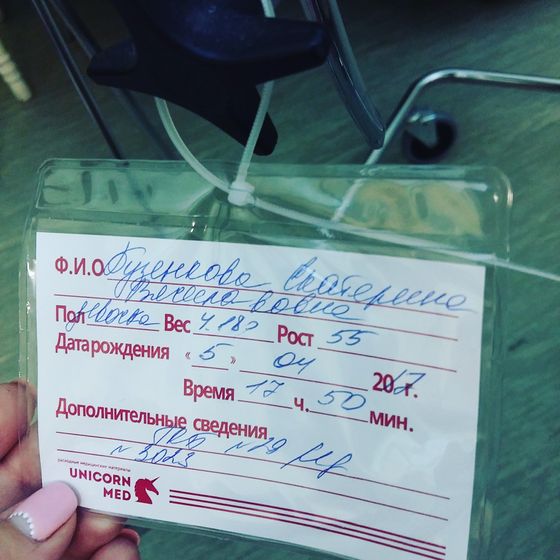 Ф.И.О Бузенкова Екатерина
Вячеславовна
Пол девочка Вес 4.180 Рост 55
Дата рождения « 5 » 04 2017 г.
Время 17 ч. 50 мин.
Дополнительные сведения
ГКБ №29
№ 3023
расходные медицинские материалы
UNICORN
MED